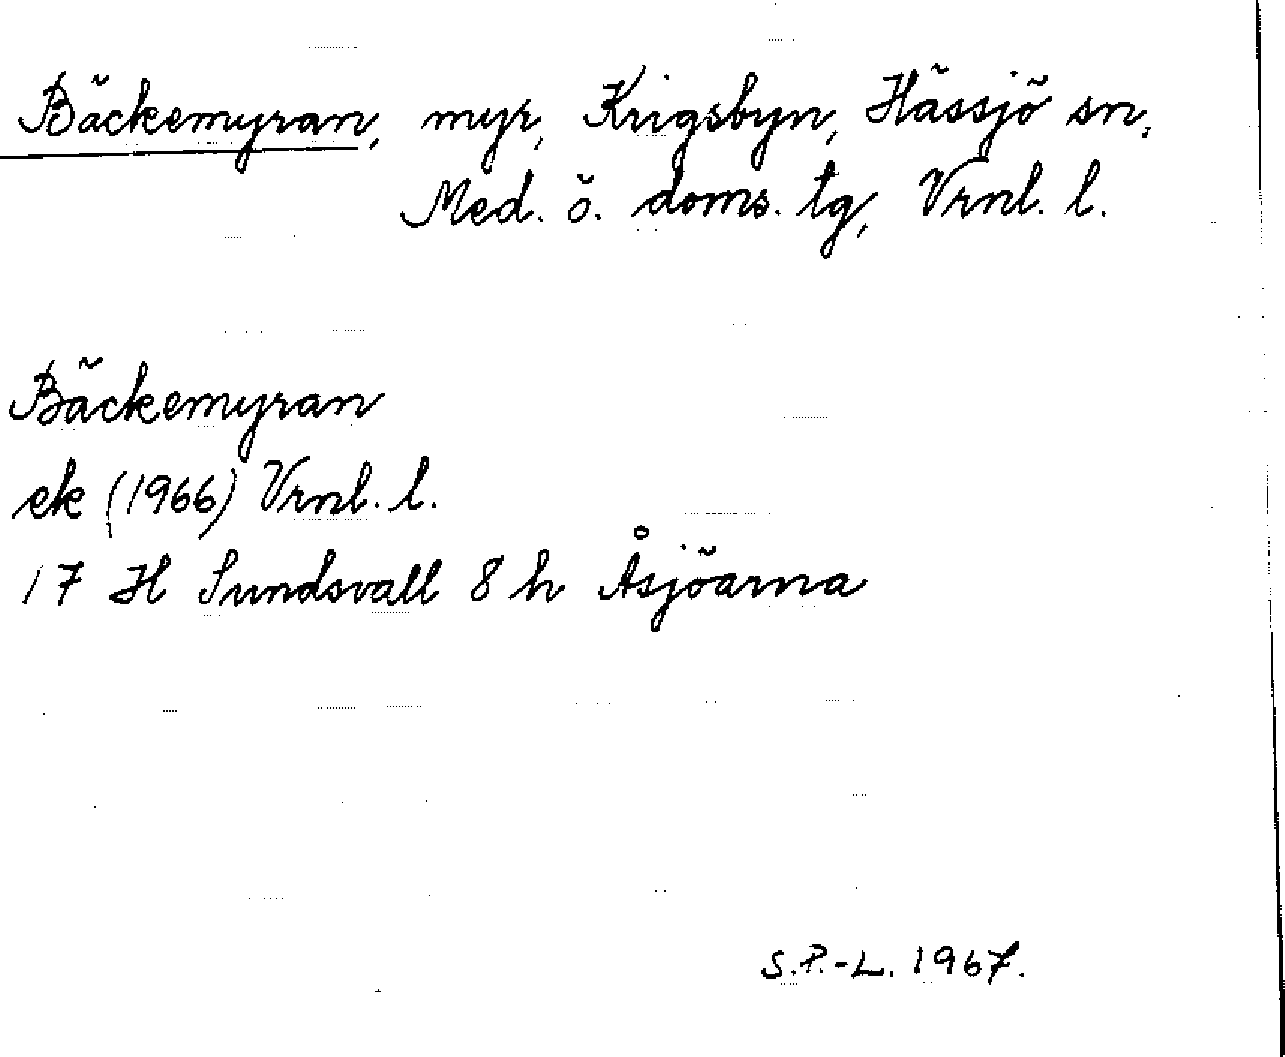 Bäckemyran, myr, Krigsbyn, Hässjö sn,
Med. ö. doms. tg, Vrnl. l.
Bäckemyran
ek (1966) Vrnl. l.
17 H Sundsvall 8 h Åsjöarna
S.P.-L. 1967.